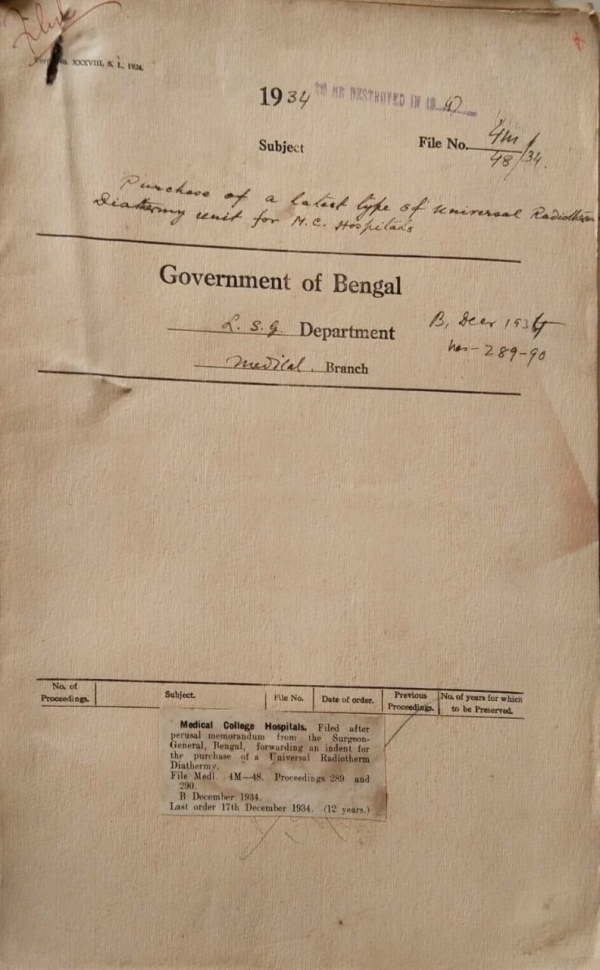 Filed
Form No. XXXVIII, S. L., 1924.
1934 TO BE DESTROYED IN 19 47
Subject File No. 4M/48/34.
Purchase of a latest type of universal Radiotherm
Diathermy unit for M.C. Hospitals
Government of Bengal
L. S. G. Department
B, Decr 1934
nos-289-90
Medical. Branch
No. of Proceedings. Subject. File No. Date of order. Previous Proceedings. No. of years for which to be Preserved.
Medical College Hospitals. Filed after
perusal memorandum from the Surgeon-
General, Bengal, forwarding an indent for
the purchase of a Universal Radiotherm
Diathermy.
File Medl. 4M—48. Proceedings 289 and
290.
B December 1934.
Last order 17th December 1934. (12 years.)